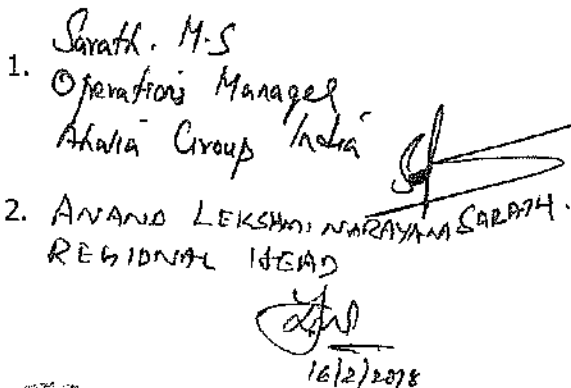 1. Sarath. M.S
Operations Manager
Ahalia Group India
2. ANAND LEKSHMI NARAYANA SARATH.
REGIONAL HEAD
16/2/2018